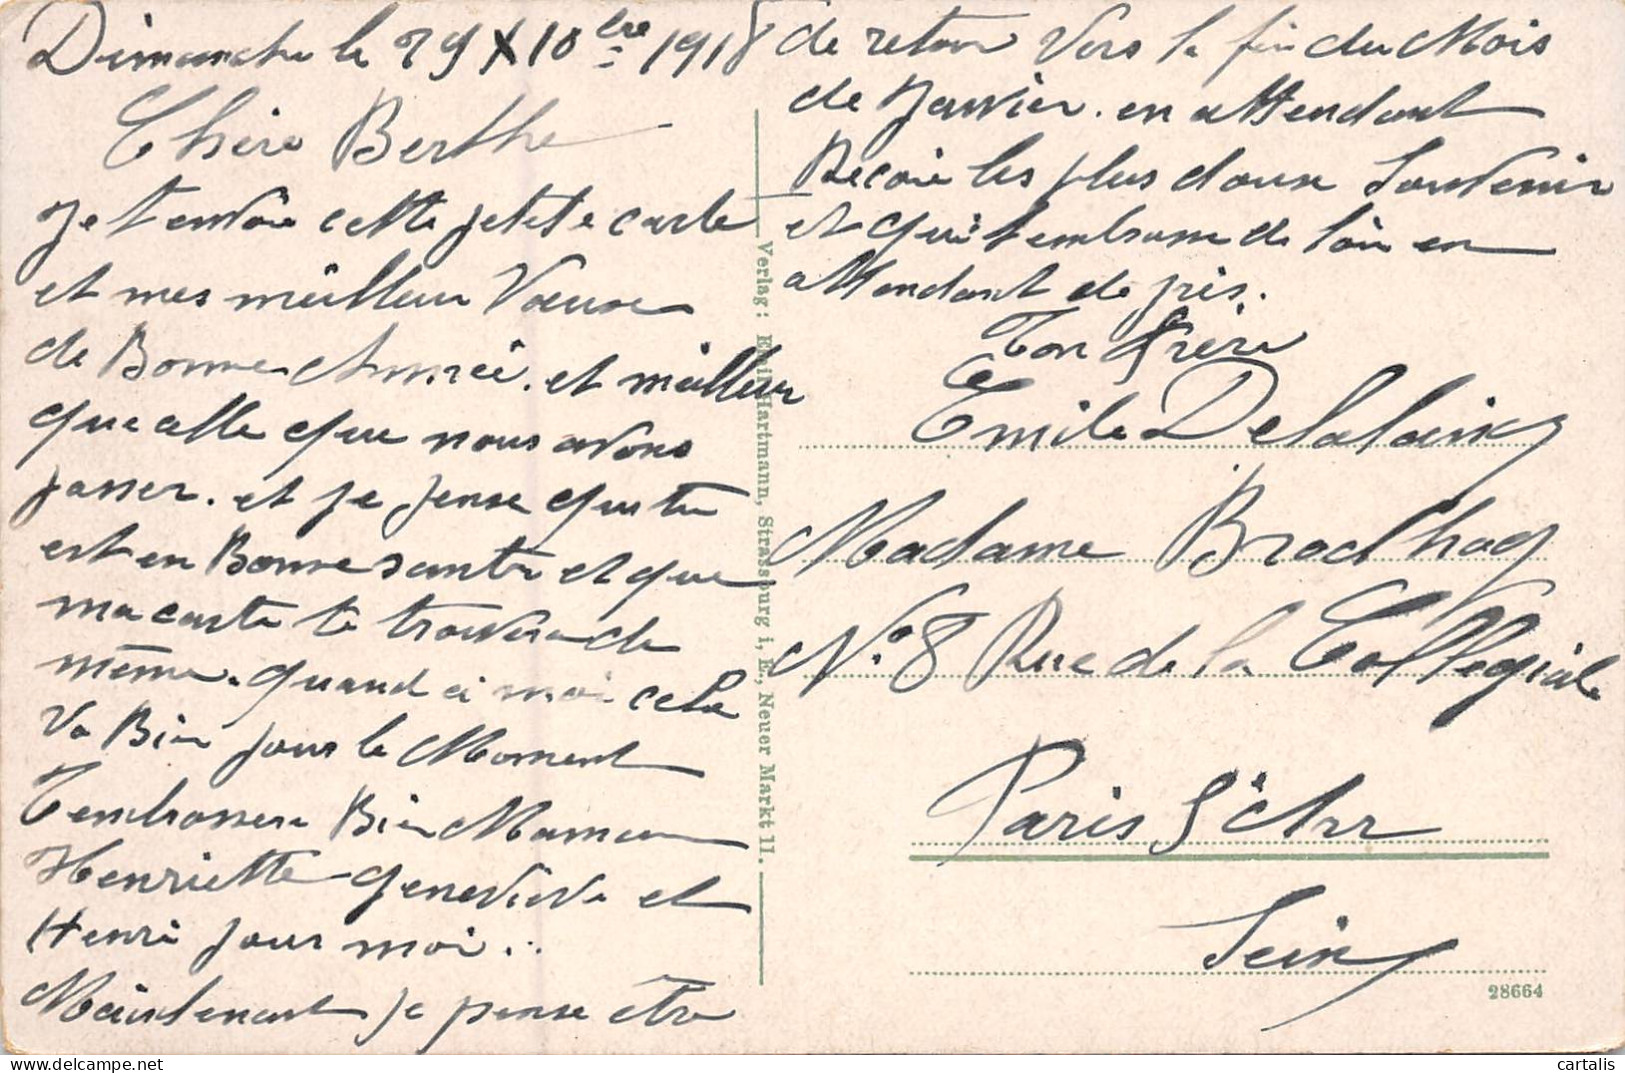 Dimanche le 29 X 10bre 1918
Chère Berthe
Je t'envoie cette petite carte
et mes meilleur Vœuxe
de Bonne Année. et meilleur
que elle que nous avons
passer. et je pense que tu
est en Bonne santé et que
ma carte te trouvera de
même. quand à moi cela
va Bien pour le Moment
T'embrassera Bien Maman
Henriette Geneviève et
Henri pour moi...
Maintenant je pense être
de retour Vers la fin du Mois
de Janvier. en attendant
Reçoie les plus douxe Souvenir
et qui t'embrasse de loin en
attendant de près.
Ton Frère
Emile Delalain
Madame Brodhag
No. 8 Rue de la Collégiale
Paris 5è Arr
Seine
Verlag: Emil Hartmann, Strassburg i. E., Neuer Markt 11.
28664
cartalis